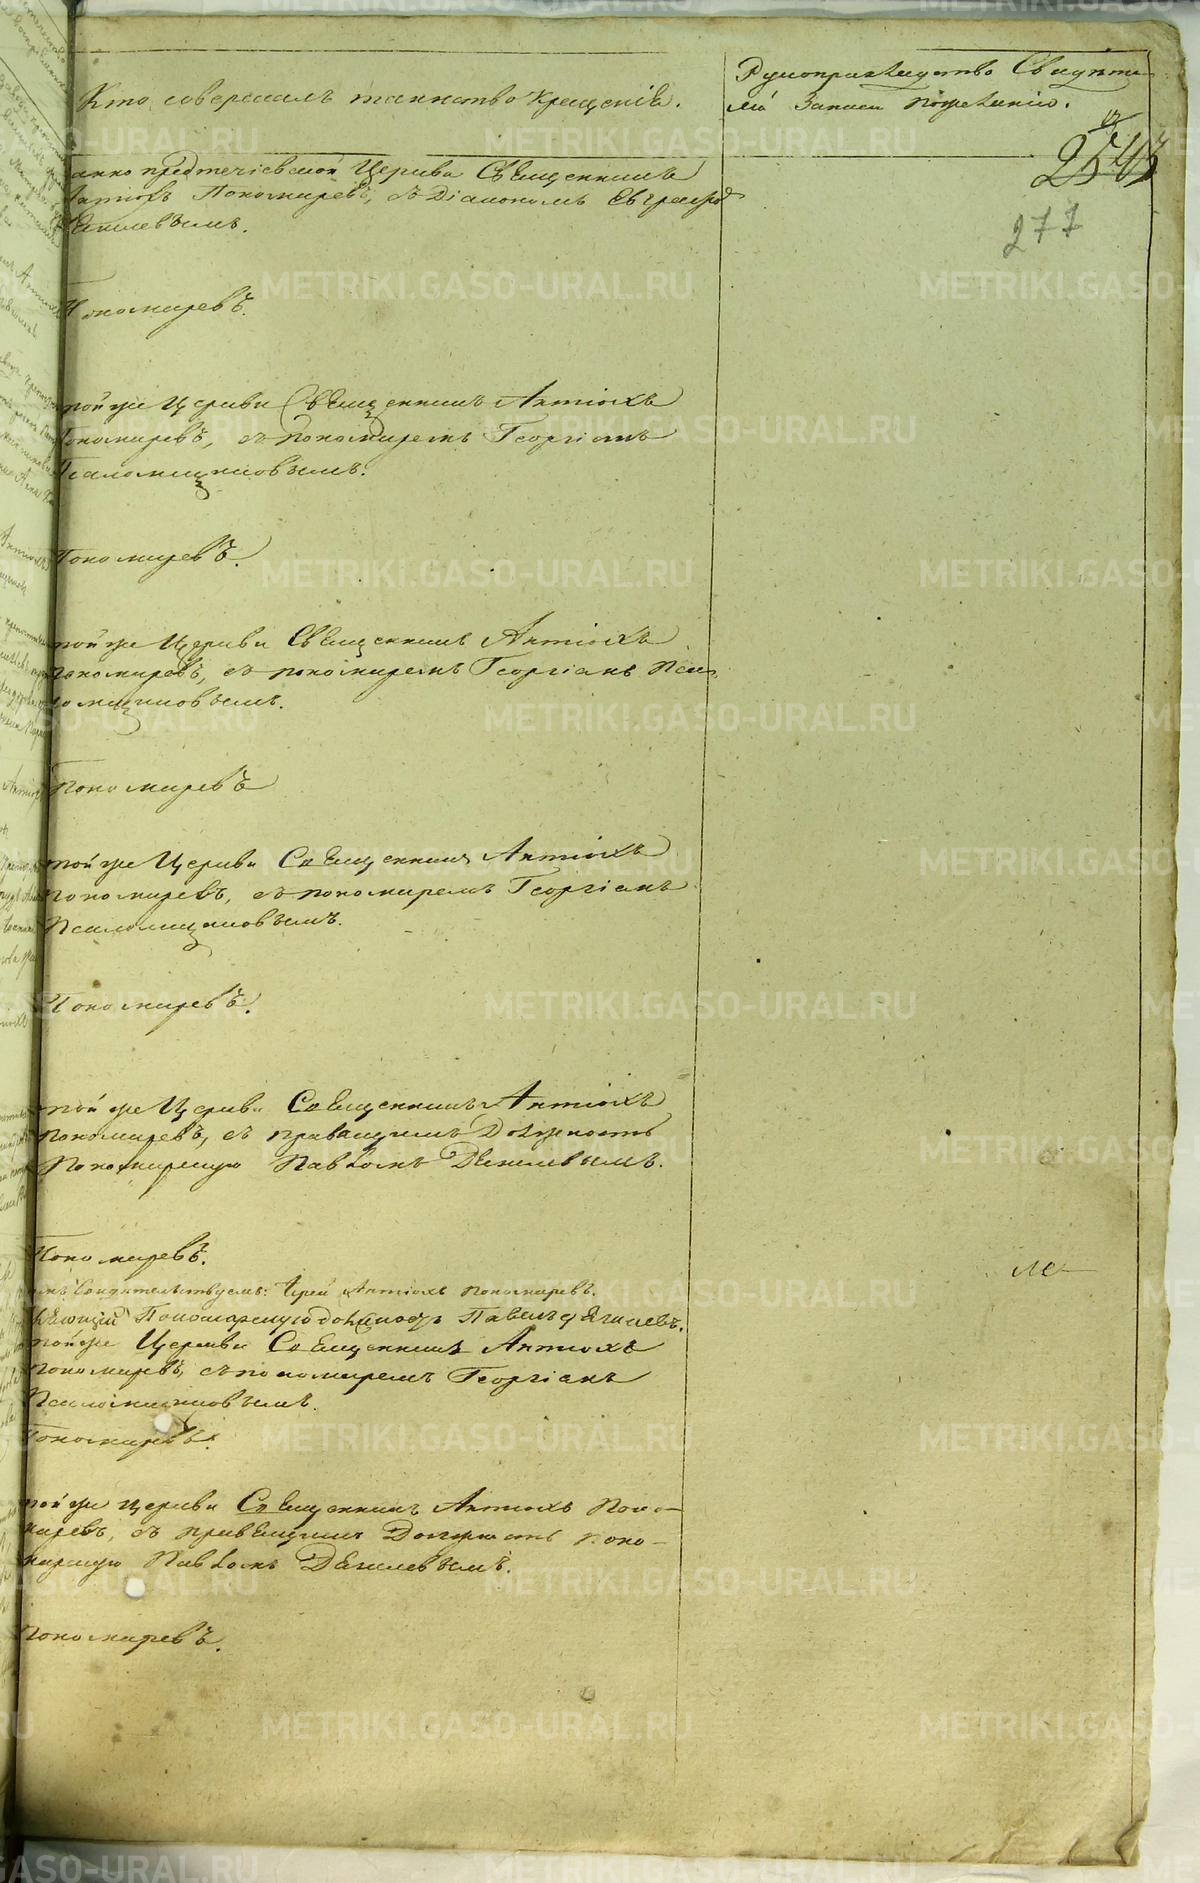 Кто совершалъ таинство крещенія.
Рукоприкладство Свидѣте
лей Записи по желанію.
254
277
анно предтечіевской Церкви Священникъ
Антіохъ Пономаревъ, съ Діакономъ Евграфо
Пономаревъ.
той же Церкви Священникъ Антіохъ
Пономаревъ, съ пономаремъ Георгіемъ
Псаломщиковымъ.
Пономаревъ.
той же Церкви Священникъ Антіохъ
Пономаревъ, съ пономаремъ Георгіемъ Пса
ломщиковымъ.
Пономаревъ
той же Церкви Священникъ Антіохъ
Пономаревъ, съ пономаремъ Георгіемъ
Псаломщиковымъ.
Пономаревъ.
той же Церкви Священникъ Антіохъ
Пономаревъ, съ правящимъ Должность
Пономарскую Павломъ
Пономаревъ.
свидѣтельствуемъ: Іерей Антіохъ Пономаревъ.
Пономарскую должность Павелъ
той же Церкви Священникъ Антіохъ
Пономаревъ, съ пономаремъ Георгіемъ
Псаломщиковымъ.
Пономаревъ.
той же Церкви Священникъ Антіохъ Поно-
маревъ, съ правящимъ Должность поно-
марскую Павломъ
Пономаревъ.
METRIKI.GASO-URAL.RU